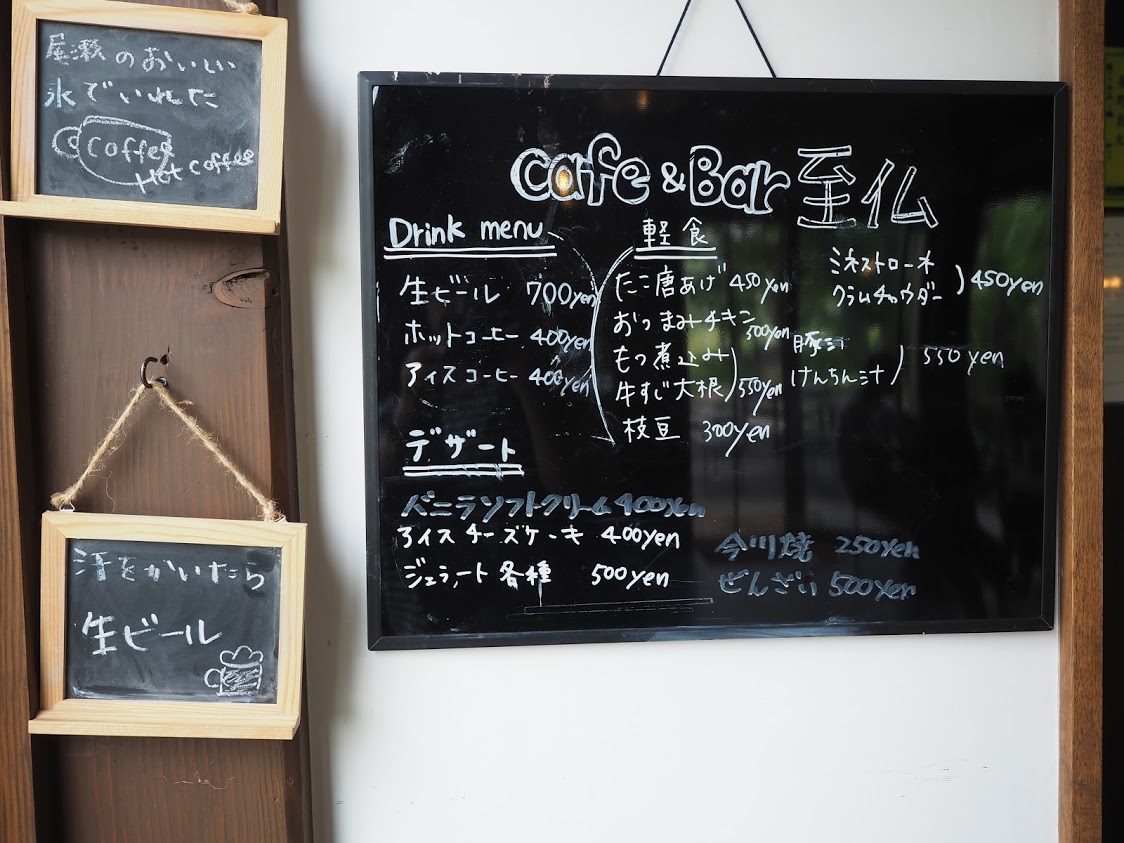 尾瀬のおいしい
水でいれた
coffee
Hot coffee
汗をかいたら
生ビール
cafe & Bar 至仏
Drink menu
生ビール 700yen
ホットコーヒー 400yen
アイスコーヒー 400yen
軽食
たこ唐あげ 450yen
おつまみチキン 500yen
もつ煮込み
牛すじ大根 550yen
枝豆 300yen
ミネストローネ
クラムチャウダー 450yen
豚汁
けんちん汁 550yen
デザート
バニラソフトクリーム 400yen
アイスチーズケーキ 400yen
ジェラート各種 500yen
今川焼 250yen
ぜんざい 500yen